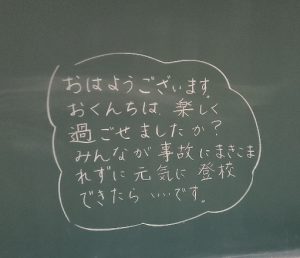 おはようございます。
おくんちは、楽しく
過ごせましたか？
みんなが事故にまきこま
れずに元気に登校
できたら いいです。